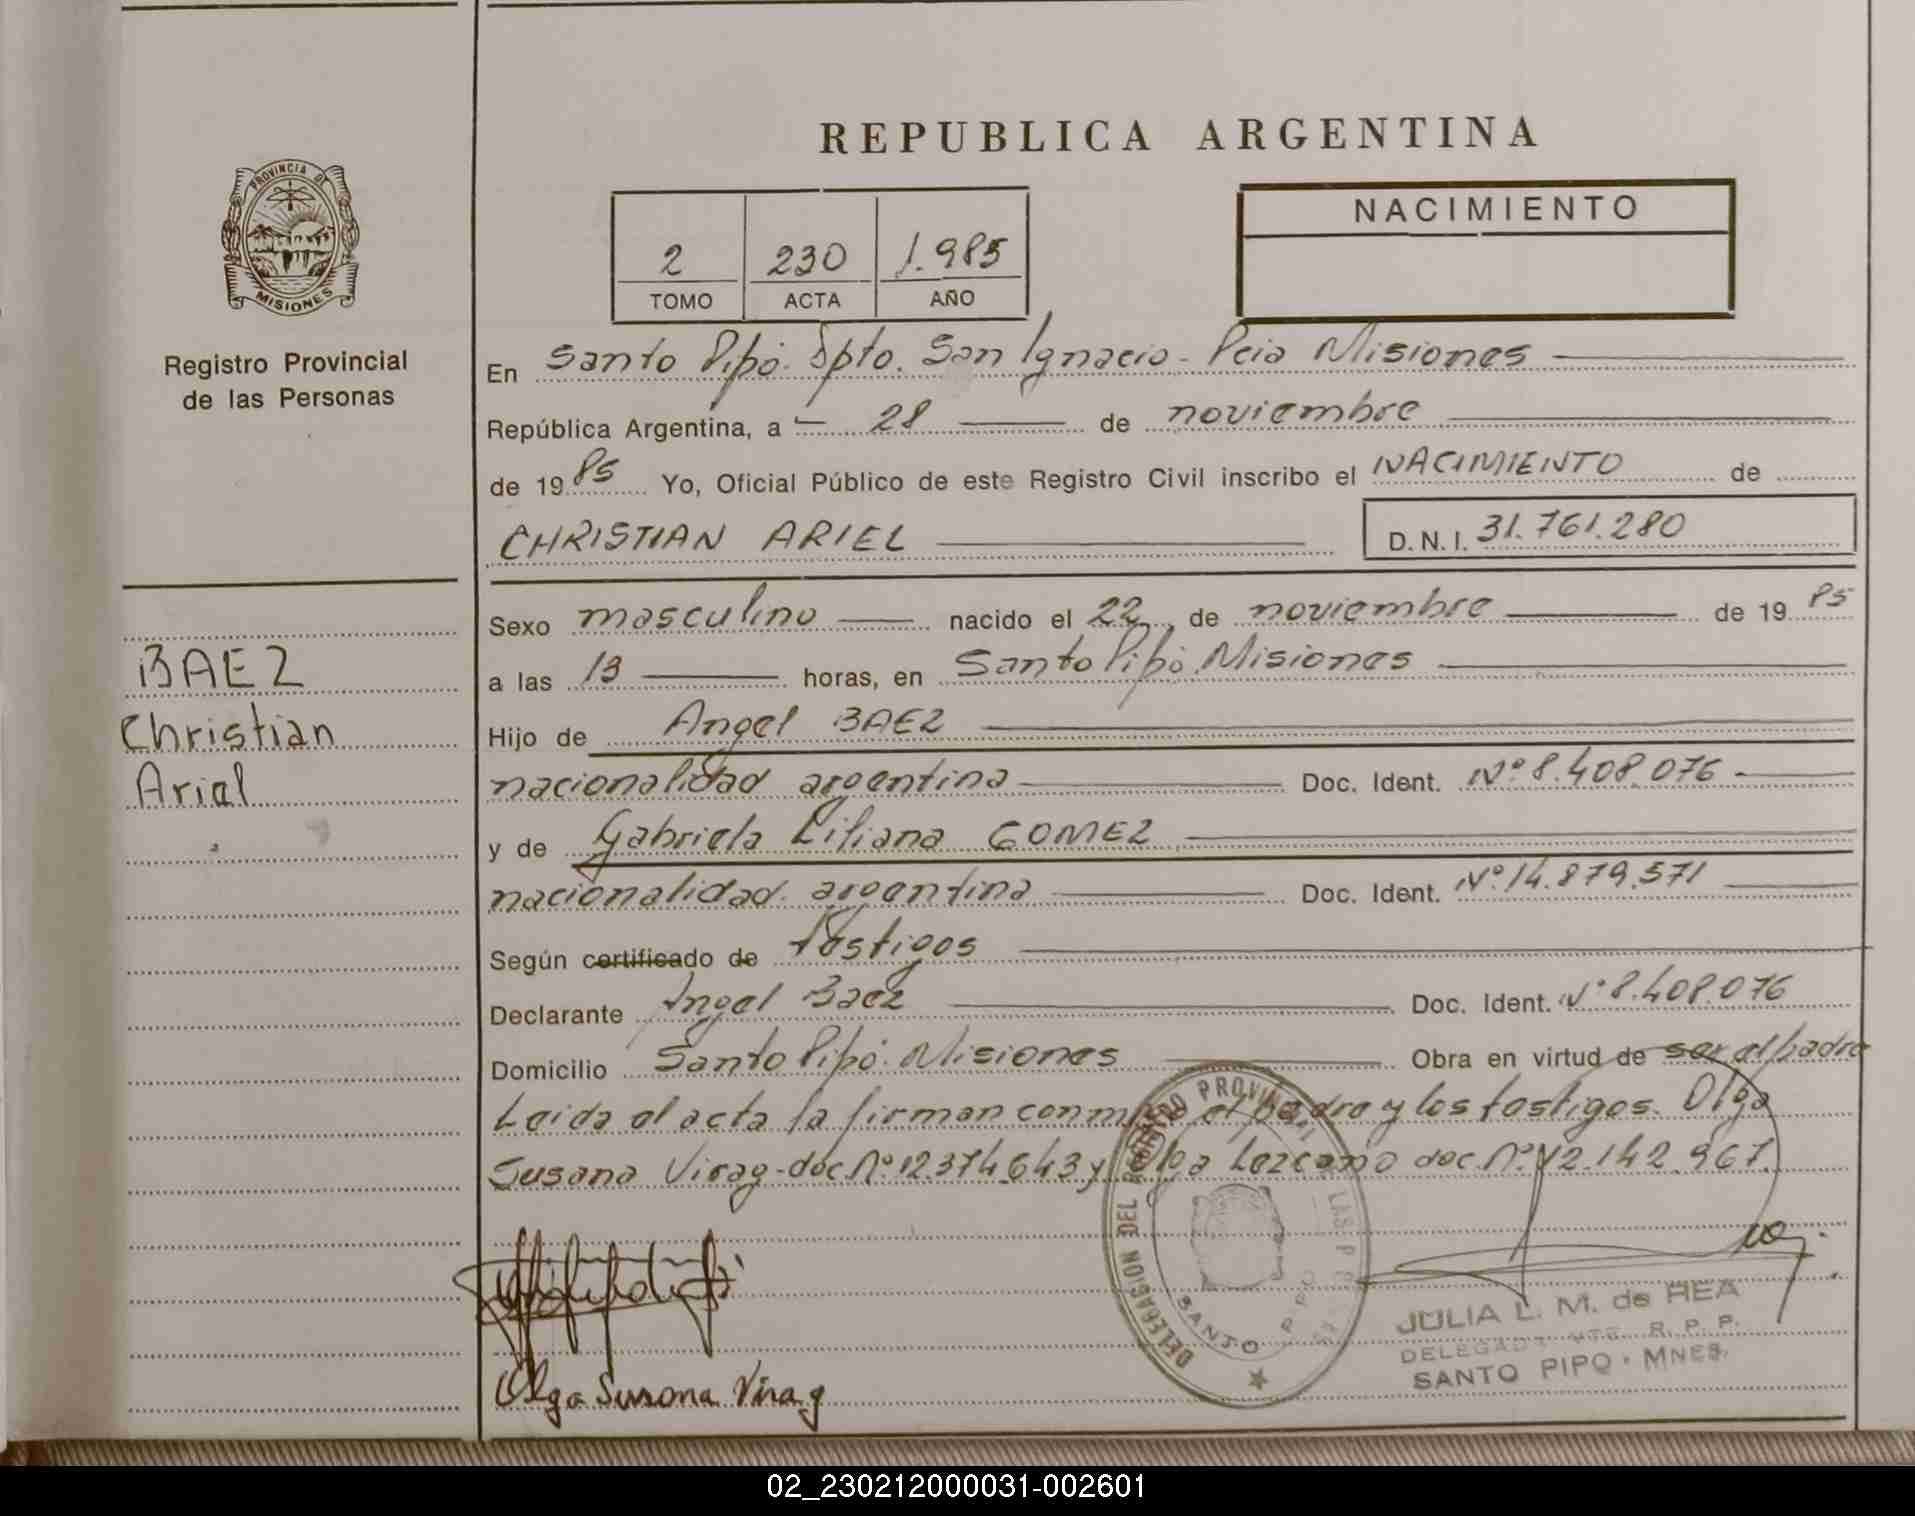 REPUBLICA ARGENTINA
PROVINCIA DE
MISIONES
Registro Provincial
de las Personas
2 230 1.985
TOMO ACTA AÑO
NACIMIENTO
En Santo Pipó. Dpto. San Ignacio - Pcia Misiones
República Argentina, a 28 de noviembre
de 1985 Yo, Oficial Público de este Registro Civil inscribo el NACIMIENTO de
CHRISTIAN ARIEL D.N.I. 31.761.280
BAEZ
Christian
Ariel
Sexo masculino nacido el 22 de noviembre de 1985
a las 13 horas, en Santo Pipó. Misiones
Hijo de Angel BAEZ
nacionalidad argentina Doc. Ident. Nº 8.408.076
y de Gabriela Liliana GOMEZ
nacionalidad argentina Doc. Ident. Nº 14.879.571
Según certificado de testigos
Declarante Angel Baez Doc. Ident. Nº 8.408.076
Domicilio Santo Pipó. Misiones Obra en virtud de ser el padre
Leida el acta la firman conmigo el padre y los testigos. Olga
Susana Virag - doc. Nº 12.374.643 y Lezcano doc. Nº 12.142.967.
DELEGACION DEL REGISTRO PROVINCIAL DE LAS
SANTO PIPO
JULIA L. M. de REA
DELEGADA R. P. P.
SANTO PIPO - MNES.
Olga Susana Virag
02_230212000031-002601